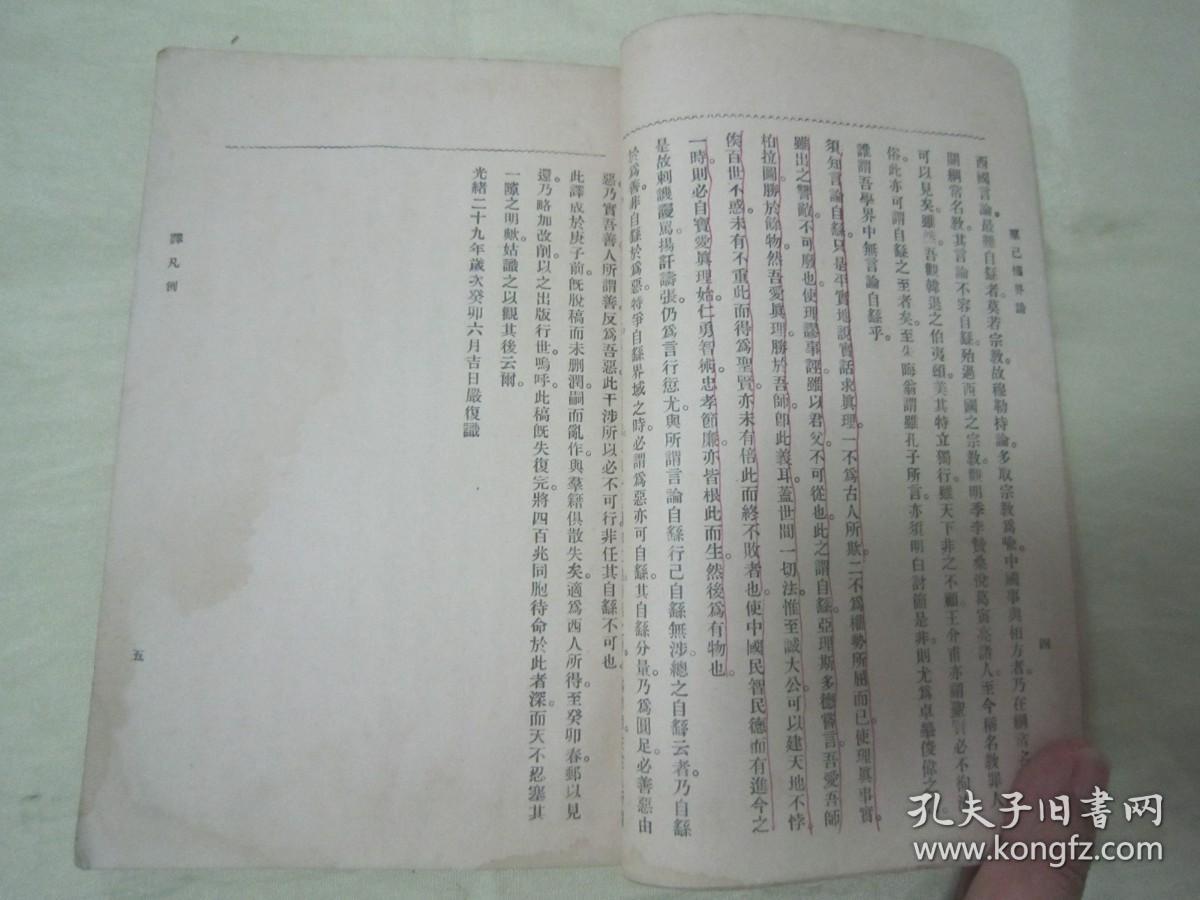 羣己權界論
四
西國言論最難自繇者莫若宗教故穆勒持論多取宗教為喩中國事與相方者乃在綱常名
關綱常名教其言論不容自繇殆過西國之宗教觀明季李贄桑悅葛寅亮諸人至今稱名教罪人
可以見矣雖然吾觀韓退之伯夷頌美其特立獨行雖天下非之不顧王介甫亦謂聖賢必不徇
俗。此亦可謂自繇之至者矣。至朱晦翁謂雖孔子所言亦須明白討箇是非則尤為卓犖俊偉之
誰謂吾學界中無言論自繇乎。
須知言論自繇只是平實地說實話求眞理。一不為古人所欺二不為權勢所屈而已使理眞事實。
雖出之讐敵不可廢也使理謬事誣雖以君父不可從也此之謂自繇亞理斯多德嘗言吾愛吾師
柏拉圖勝於餘物然吾愛眞理勝於吾師卽此義耳。蓋世間一切法惟至誠大公可以建天地不悖
俟百世不惑未有不重此而得為聖賢亦未有倍此而終不敗者也使中國民智民德而有進今之
一時則必自寶愛眞理始仁勇智術忠孝節廉亦皆根此而生。然後為有物也。
是故刺譏謾罵揚訐譸張仍為言行愆尤與所謂言論自繇行己自繇無涉。總之自繇云者乃自繇
於為善。非自繇於為惡。特爭自繇界域之時必謂為惡亦可自繇。其自繇分量。乃為圓足。必善惡由
惡乃實吾善人所謂善反為吾惡。此干涉所以必不可行非任其自繇不可也
此譯成於庚子前。旣脫稿而未刪潤。嗣而亂作與羣籍俱散失矣。適為西人所得。至癸卯春郵以見
還乃略加改削。以之出版行世。嗚呼。此稿旣失復完。將四百兆同胞待命於此者深。而天不忍塞其
一隙之明歟。姑識之以觀其後云爾。
光緖二十九年歲次癸卯六月吉日嚴復識
譯凡例
五
孔夫子旧书网
www.kongfz.com